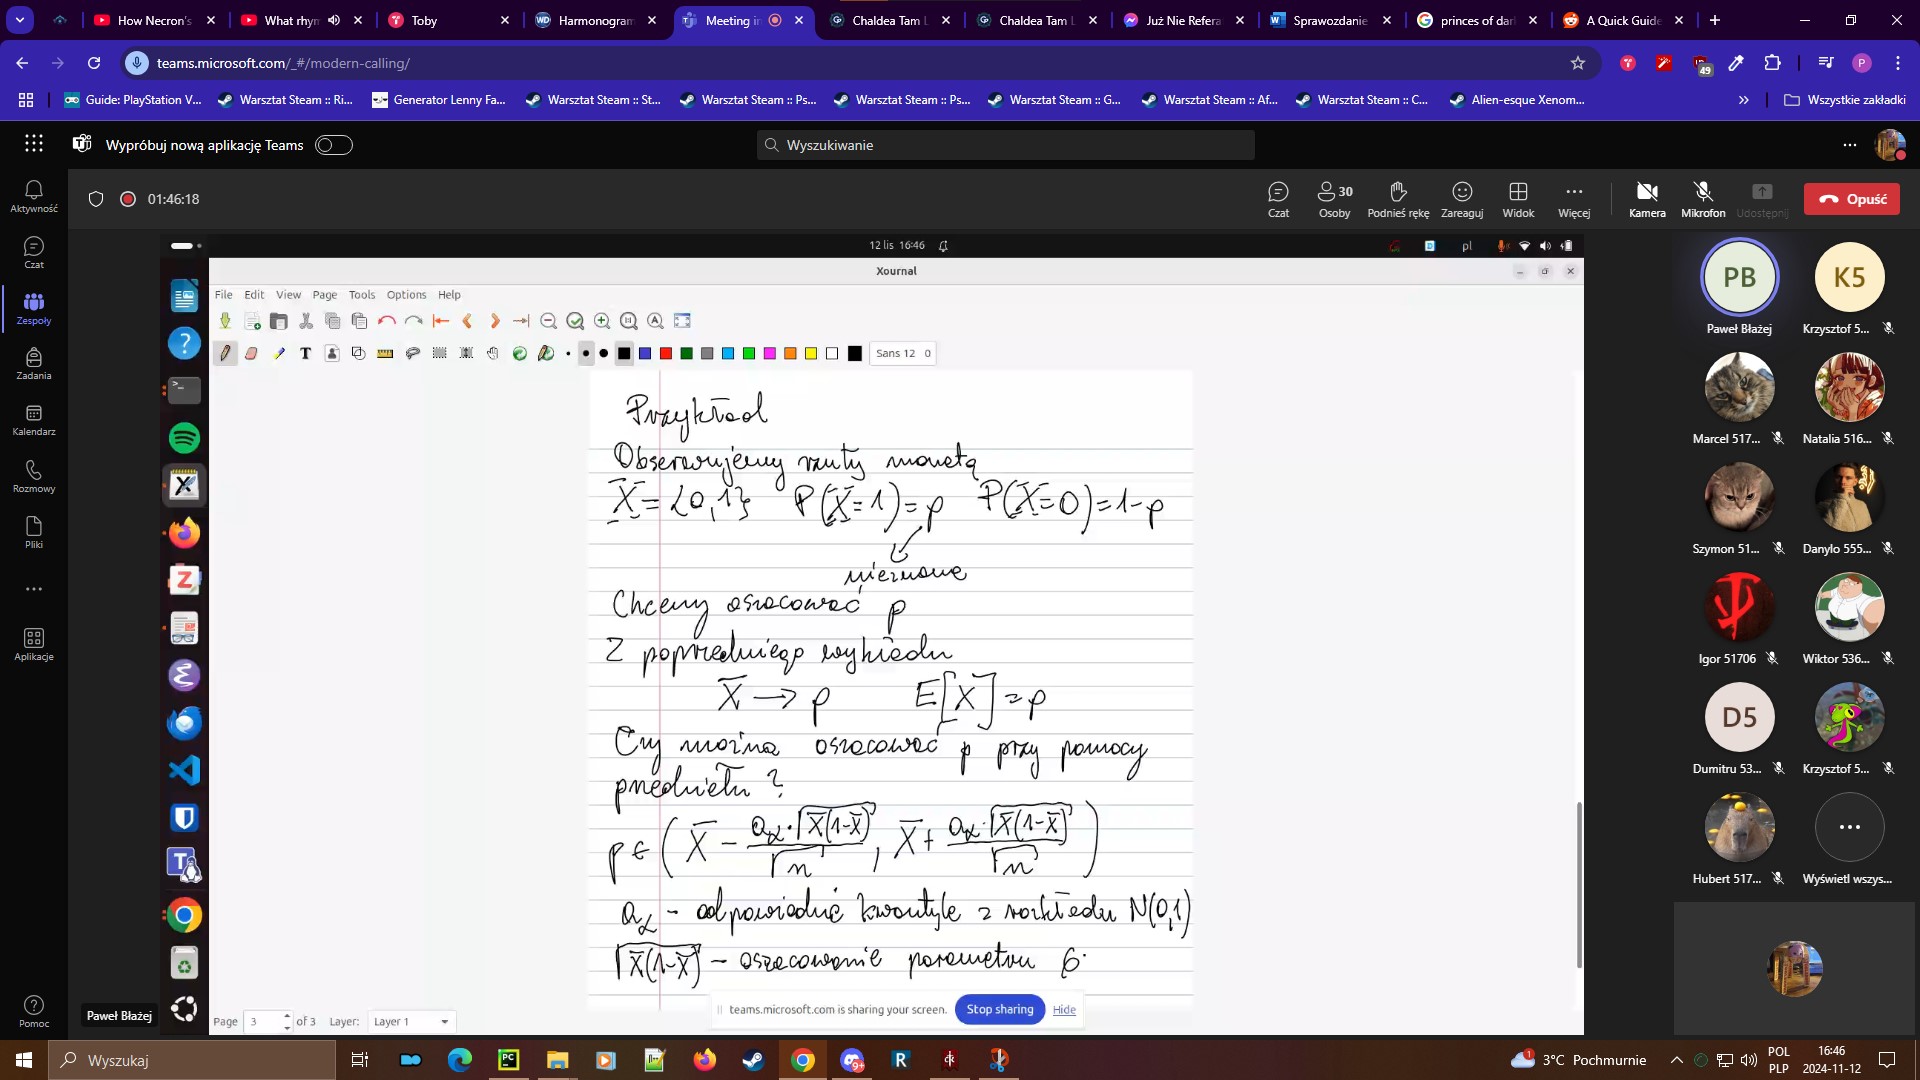 How Necron's
What rhym
Toby
Harmonogram
Meeting in
Chaldea Tam L
Chaldea Tam L
Już Nie Refera
Sprawozdanie
princes of dar
A Quick Guide
teams.microsoft.com/_#/modern-calling/
49
P
Guide: PlayStation V...
Warsztat Steam :: Ri...
Generator Lenny Fa...
Warsztat Steam :: St...
Warsztat Steam :: Ps...
Warsztat Steam :: Ps...
Warsztat Steam :: G...
Warsztat Steam :: Af...
Warsztat Steam :: C...
Alien-esque Xenom...
Wszystkie zakładki
Wypróbuj nową aplikację Teams
Wyszukiwanie
Aktywność
Czat
Zespoły
Zadania
Kalendarz
Rozmowy
Pliki
Aplikacje
Pomoc
01:46:18
Czat
30
Osoby
Podnieś rękę
Zareaguj
Widok
Więcej
Kamera
Mikrofon
Udostępnij
Opuść
12 lis 16:46
pl
Xournal
File Edit View Page Tools Options Help
Sans 12 0
Przykład
Obserwujemy rzuty monetą
X = {0,1} P(X=1)=p P(X=0)=1-p
nieznane
Chcemy oszacować p
Z poprzedniego wykładu
X̄ → p E[X] = p
Czy można oszacować p przy pomocy
przedziału ?
p ∈ ( X̄ - a_α·√X̄(1-X̄) / √n , X̄ + a_α·√X̄(1-X̄) / √n )
a_α - odpowiednie kwantyle z rozkładu N(0,1)
√X̄(1-X̄) - oszacowanie parametru σ
teams.microsoft.com is sharing your screen. Stop sharing Hide
Page 3 of 3 Layer: Layer 1
Paweł Błażej
PB
Paweł Błażej
K5
Krzysztof 5...
Marcel 517...
Natalia 516...
Szymon 51...
Danylo 555...
Igor 51706
Wiktor 536...
D5
Dumitru 53...
Krzysztof 5...
Hubert 517...
Wyświetl wszys...
Wyszukaj
PC
9+
R
1
3°C Pochmurnie
POL
PLP
16:46
2024-11-12